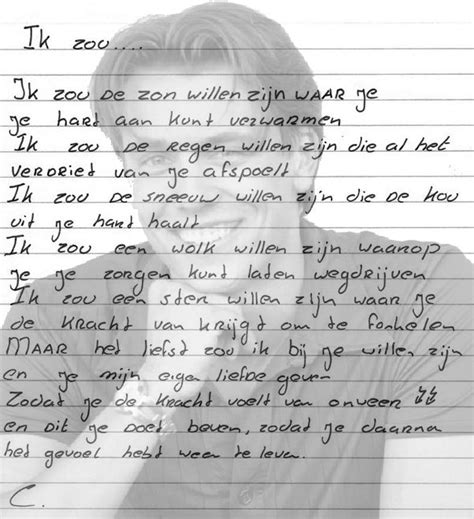 Ik zou....
Ik zou de zon willen zijn waar je
je hart aan kunt verwarmen
Ik zou de regen willen zijn die al het
verdriet van je afspoelt
Ik zou de sneeuw willen zijn die de kou
uit je hart haalt
Ik zou een wolk willen zijn waarop
je je zorgen kunt laden wegdrijven
Ik zou een ster willen zijn waar je
de kracht van krijgt om te fonkelen
Maar het liefst zou ik bij je willen zijn
en je mijn eigen liefde geven
Zodat je de kracht voelt van onweer
en dit je doet beven, zodat je daarna
het gevoel hebt weer te leven.
C.